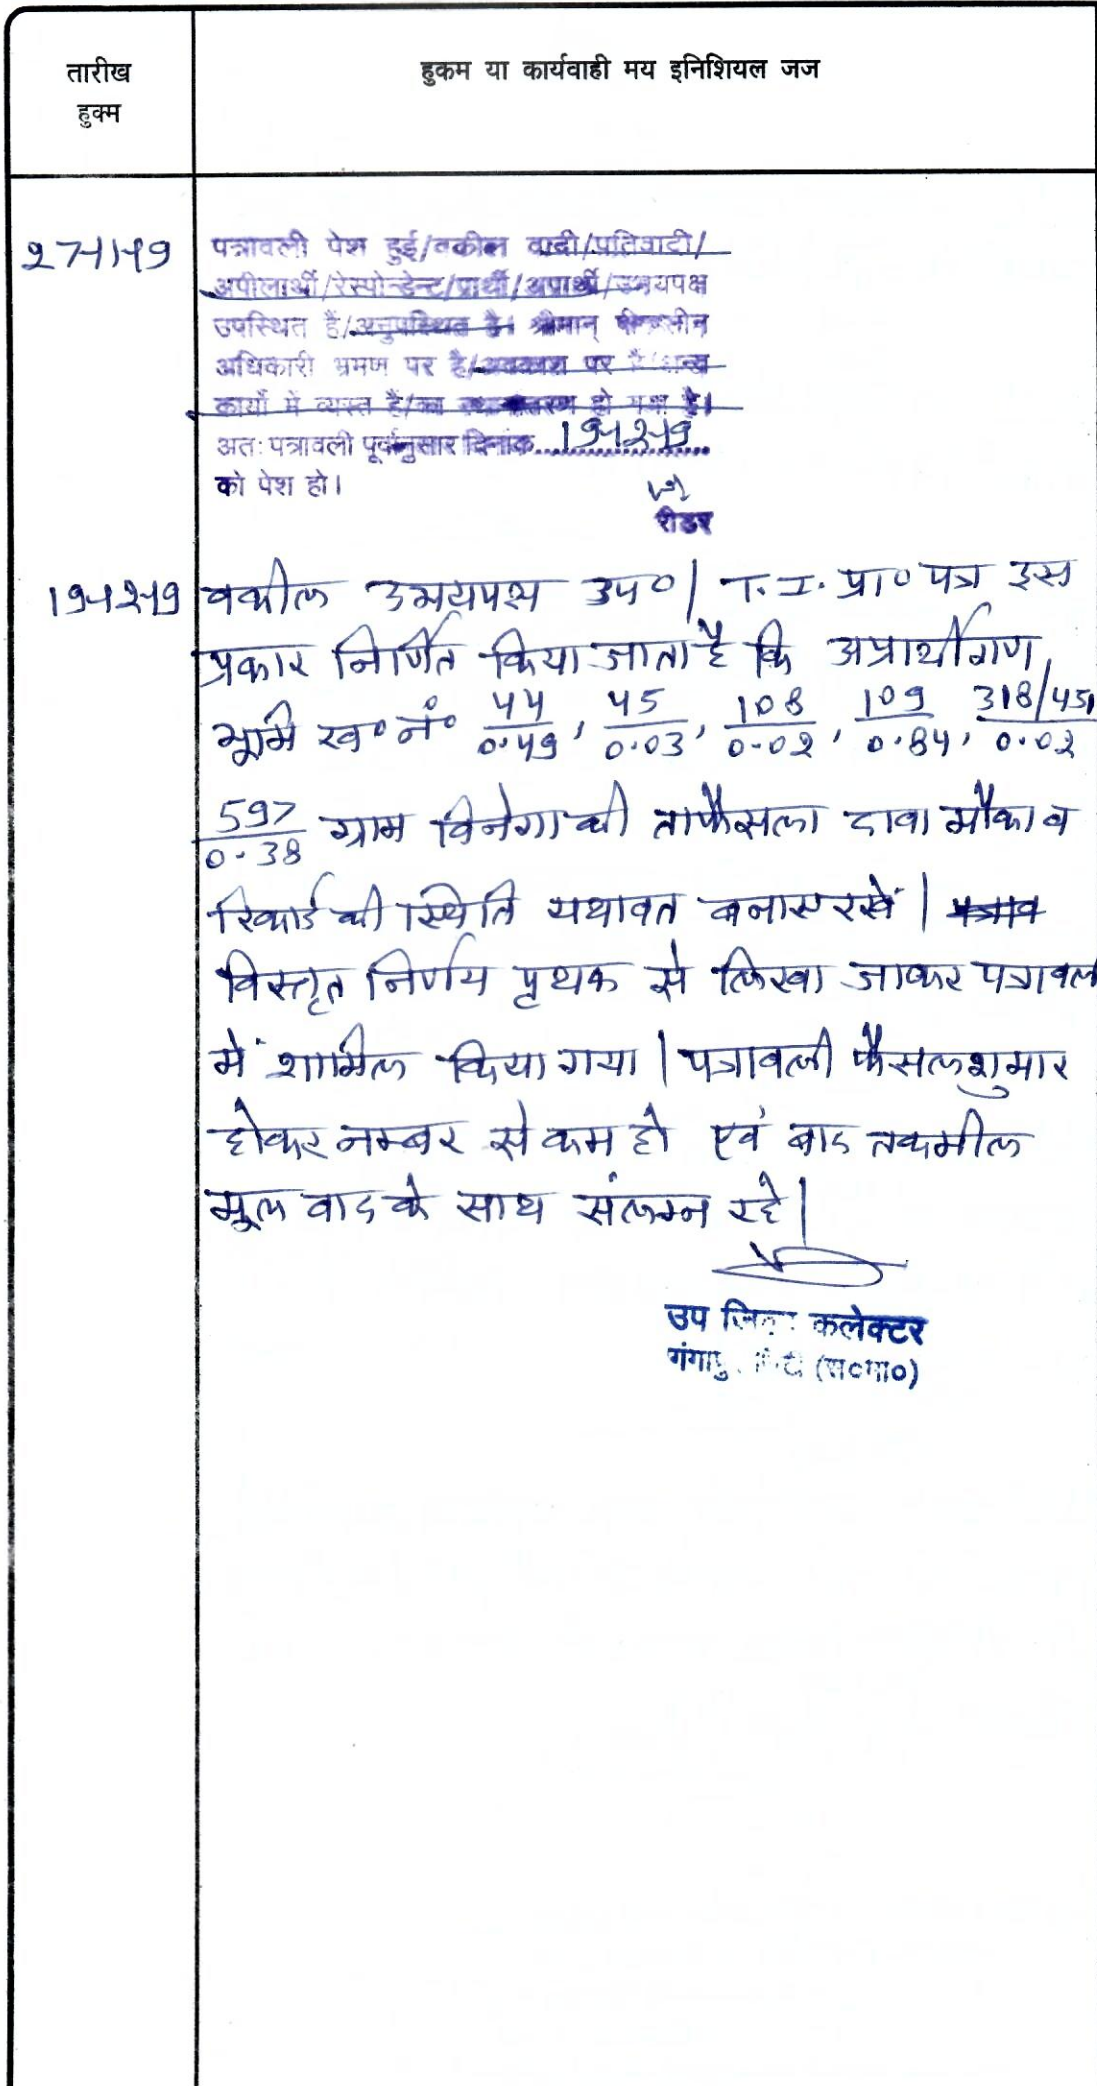 तारीख
हुक्म
हुकम या कार्यवाही मय इनिशियल जज
27-11-19
पत्रावली पेश हुई/वकील वादी/प्रतिवादी/
अपीलार्थी/रेस्पोन्डेन्ट/प्रार्थी/अप्रार्थी/उभयपक्ष
उपस्थित हैं/अनुपस्थित है। श्रीमान् पीठासीन
अधिकारी भ्रमण पर है/अवकाश पर है/अन्य
कार्यों में व्यस्त हैं/का स्थानान्तरण हो गया है।
अतः पत्रावली पूर्वानुसार दिनांक 19-12-19
को पेश हो।
रीडर
19-12-19 वकील उभयपक्ष उप० | T.I. प्रा० पत्र इस
प्रकार निर्णित किया जाता है कि अप्रार्थीगण
भूमि ख० नं० 44/0.49, 45/0.03, 108/0.02, 109/0.84, 318/451/0.02,
597/0.38 ग्राम विनेगा की ताफैसला दावा मौका व
रिकार्ड की स्थिति यथावत बनाए रखें |
विस्तृत निर्णय पृथक से लिखा जाकर पत्रावल
में शामिल किया गया | पत्रावली फैसलशुमार
होकर नम्बर से कम हो एवं बाद तकमील
मूल वाद के साथ संलग्न रहे |
उप जिला कलेक्टर
गंगापुर सिटी (स०मा०)